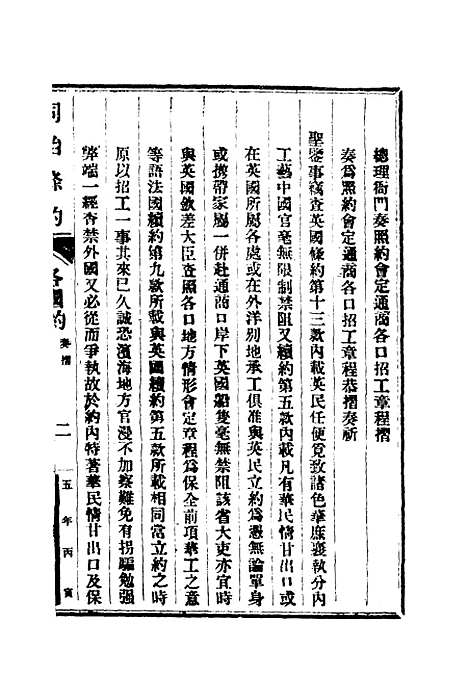 總理衙門奏照約會定通商各口招工章程摺
奏爲照約會定通商各口招工章程恭摺奏祈
聖鑒事竊查英國條約第十三款內載英民任便覓致諸色華庶襄執分內
工藝中國官毫無限制禁阻又續約第五款內載凡有華民情甘出口或
在英國所屬各處或在外洋別地承工俱准與英民立約爲憑無論單身
或携帶家屬一併赴通商口岸下英國船隻毫無禁阻該省大吏亦宜時
與英國欽差大臣查照各口地方情形會定章程爲保全前項華工之意
等語法國續約第九款所載與英國續約第五款所載相同當立約之時
原以招工一事其來已久誠恐濱海地方官漫不加察難免有拐騙勉强
弊端一經查禁外國又必從而爭執故於約內特著華民情甘出口及保
同治條約
各國約
奏摺
二
五年丙寅